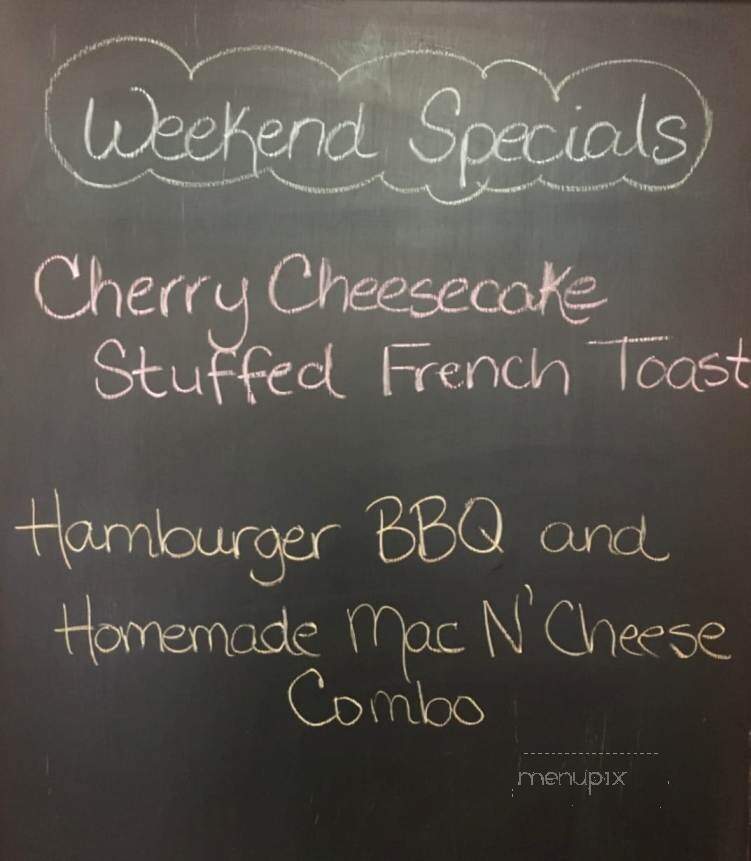 Weekend Specials
Cherry Cheesecake
Stuffed French Toast
Hamburger BBQ and
Homemade Mac N' Cheese
Combo
menupix